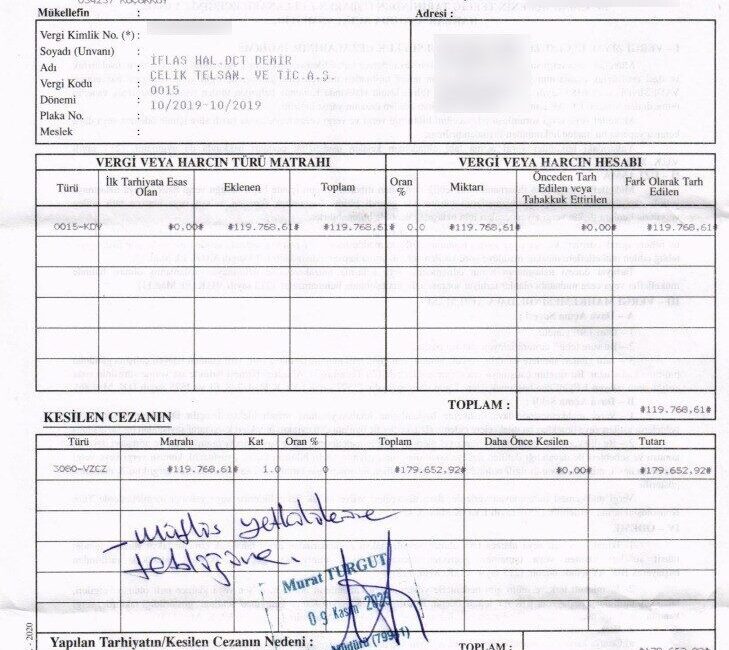 Mükellefin :
Adresi :
Vergi Kimlik No. (*) :
Soyadı (Unvanı) :
Adı : İFLAS HAL.DCT DEMİR
ÇELİK TELSAN. VE TİC.A.Ş.
Vergi Kodu : 0015
Dönemi : 10/2019-10/2019
Plaka No. :
Meslek :
VERGİ VEYA HARCIN TÜRÜ MATRAHI
VERGİ VEYA HARCIN HESABI
Türü İlk Tarhiyata Esas Olan Eklenen Toplam Oran % Miktarı Önceden Tarh Edilen veya Tahakkuk Ettirilen Fark Olarak Tarh Edilen
0015-KDV *0.00* *119.768,61* *119.768,61* 0.0 *119.768,61* *0.00* *119.768,61*
TOPLAM : *119.768,61*
KESİLEN CEZANIN
Türü Matrahı Kat Oran % Toplam Daha Önce Kesilen Tutarı
3080-VZCZ *119.768,61* 1.0 0 *179.652,92* *0.00* *179.652,92*
- müflis
Murat TURGUT
09 Kasım
Müdürü
2020
Yapılan Tarhiyatın/Kesilen Cezanın Nedeni :
TOPLAM : *179.652,92*